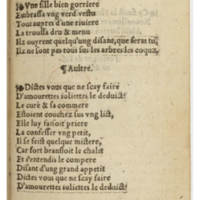 Vne fille bien gorriere
Embrassa vng verd vestu
Tout aupres d'une riuiere
La troussa dru & menu
Ilz ouyrent quelqu'ung disant, que feras tu,
Ilz ne sont pas tous sus les arbres les coquz,
¶Aultre.
Dictes vous que ne sçay faire
D'amourettes soliettes le deduict!
Le curé & sa commere
Estoient couchez sus vng lict,
Elle luy faisoit priere
La confesser vng petit,
Il se feist quelque mistere,
Car fort bransloit le chalit
Et s'entendis le compere
Disant d'ung grant appetit
Dictes vous que ne sçay faire
D'amourettes soliettes le deduict!